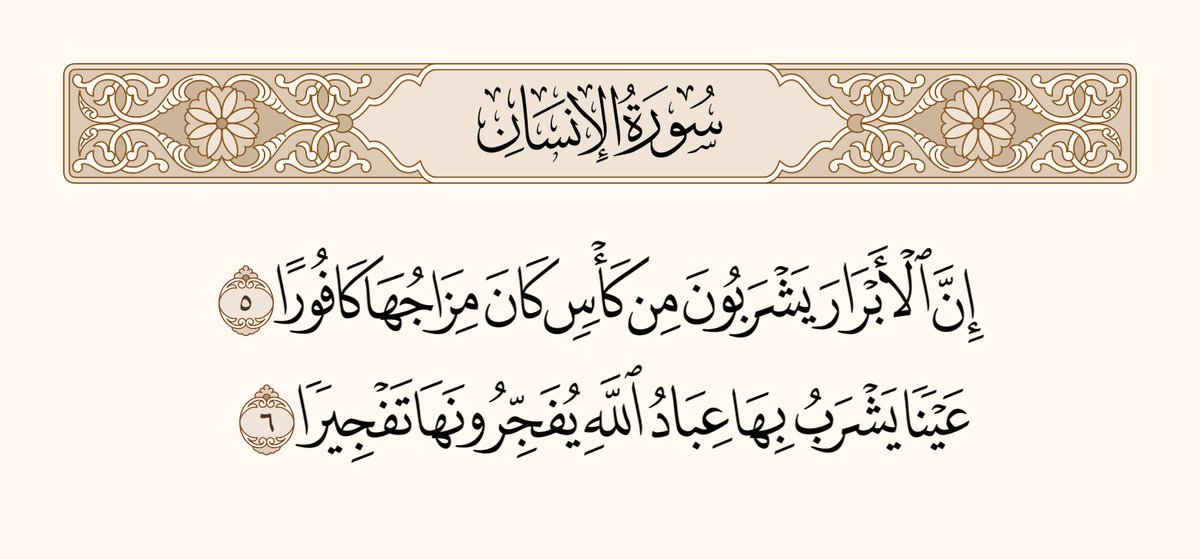 سُورَةُ الإِنسَانِ
إِنَّ ٱلۡأَبۡرَارَ يَشۡرَبُونَ مِن كَأۡسٖ كَانَ مِزَاجُهَا كَافُورًا ٥
عَيۡنٗا يَشۡرَبُ بِهَا عِبَادُ ٱللَّهِ يُفَجِّرُونَهَا تَفۡجِيرٗا ٦